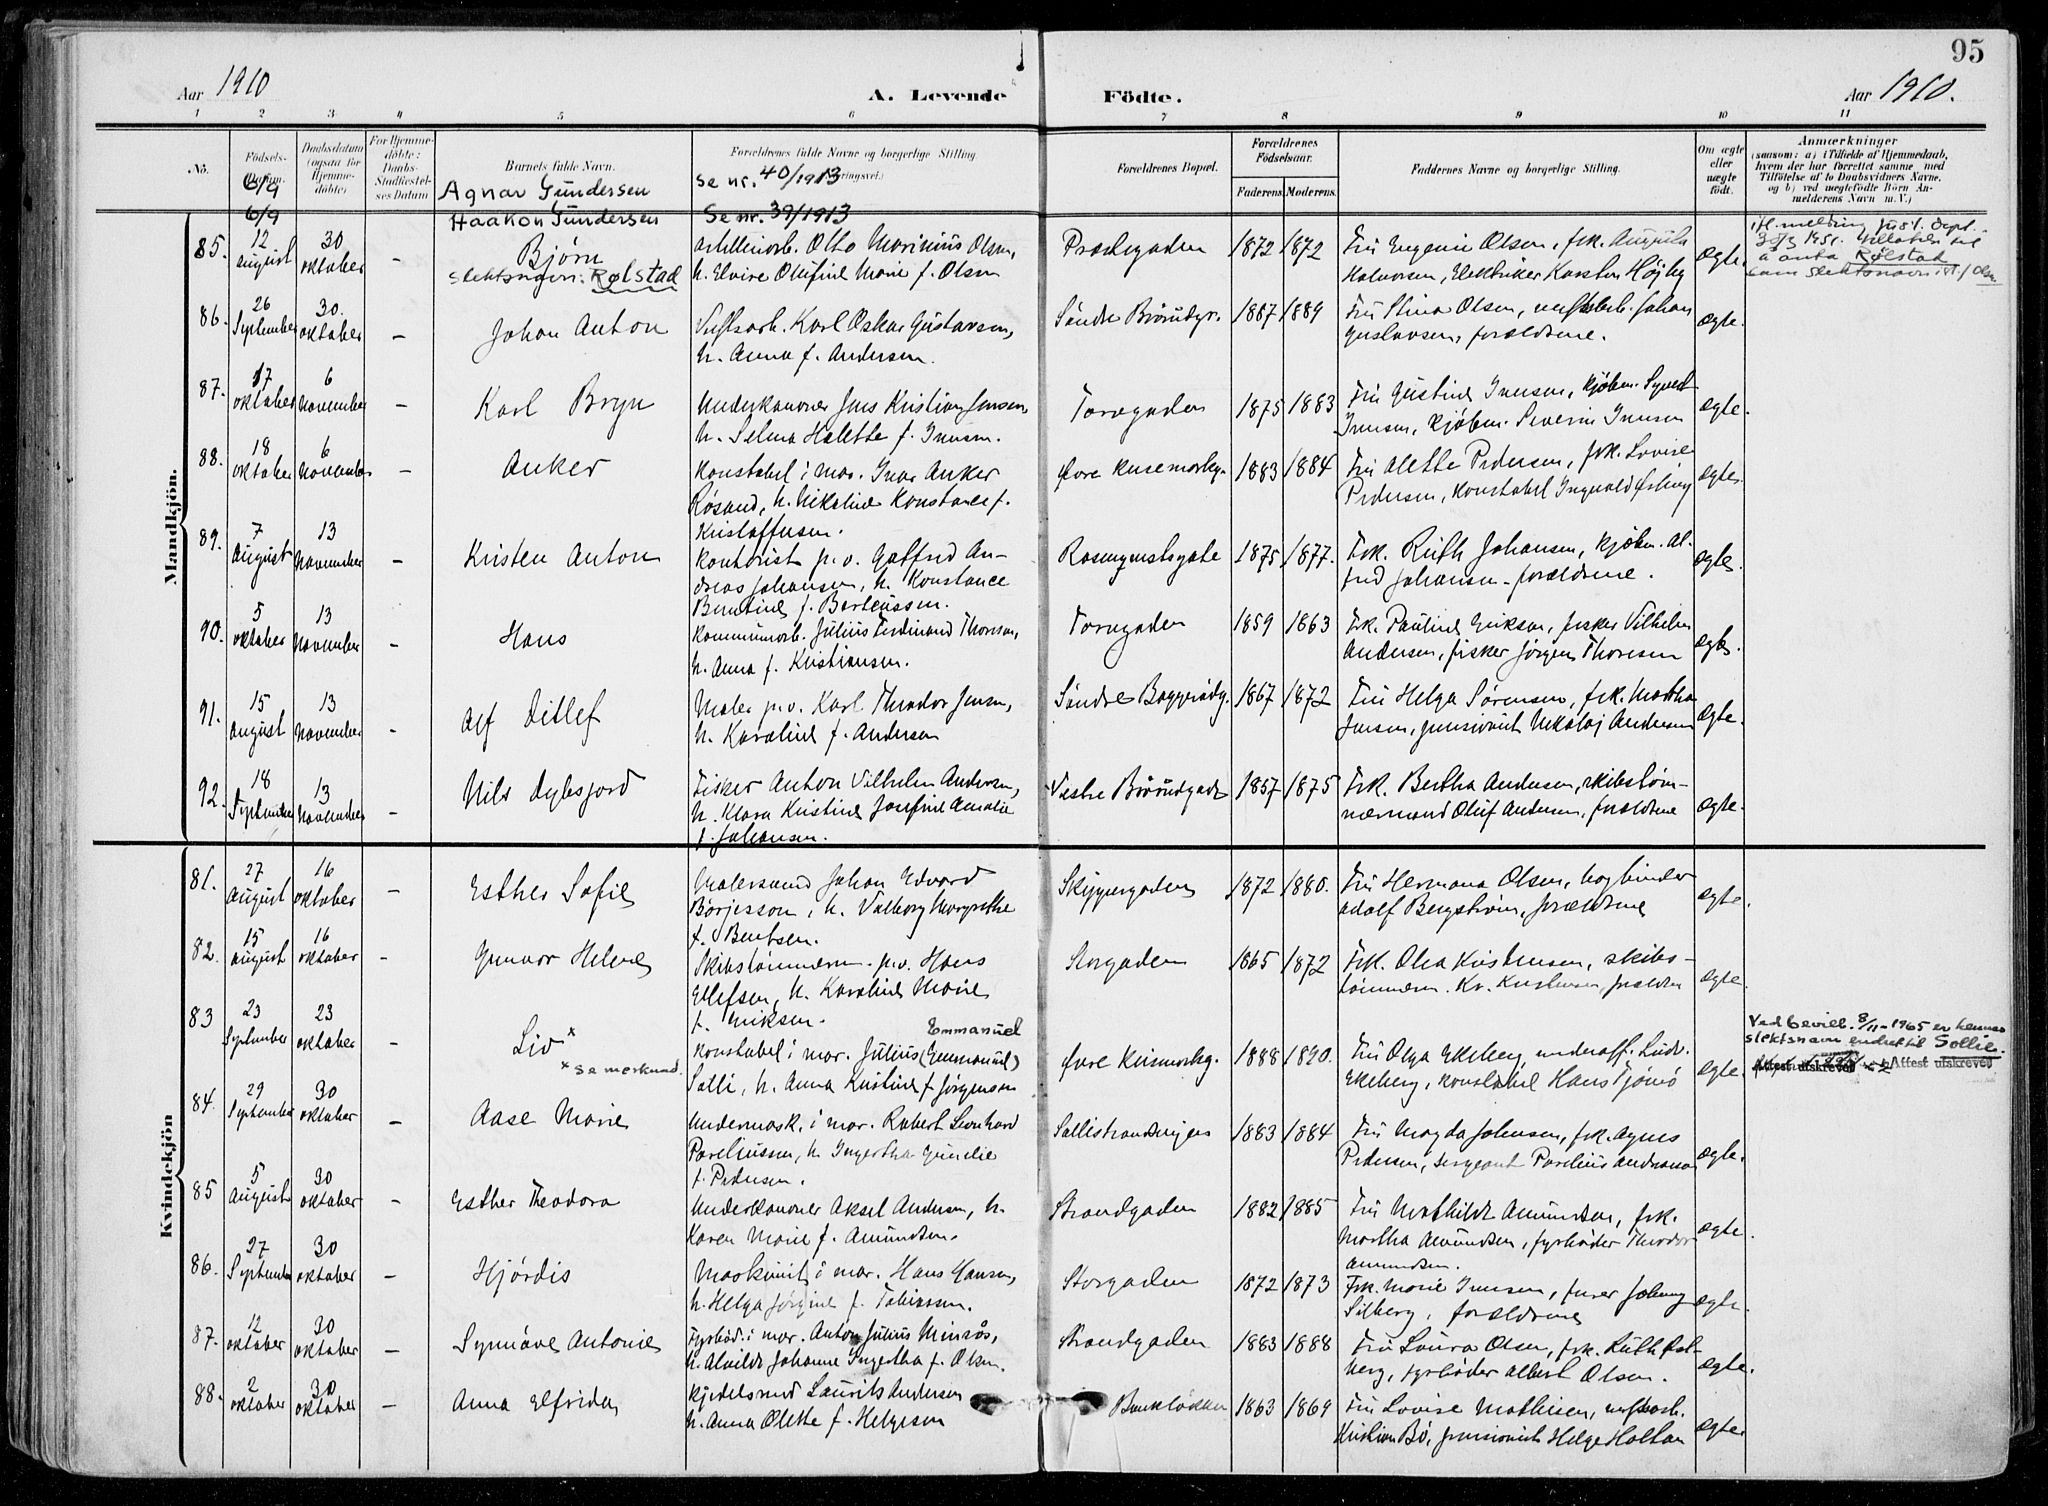 95
Aar 1910
A. Levende Födte.
Aar 1910.
1 2 3 4 5 6 7 8 9 10 11
No.
Födsels-Datum.
Daabsdatum (ogsaa for Hjemmedøbte)
For Hjemmedøbte: Daabs-Stadfæstelses Datum
Barnets fulde Navn.
Forældrenes fulde Navne og borgerlige Stilling
Forældrenes Bopæl.
Forældrenes Födselsaar.
Faderens. Moderens.
Faddernes Navne og borgerlige Stilling.
Om ægte eller uægte födt.
Anmærkninger
(saasom: a) i Tilfælde af Hjemmedaab, hvem der har forrettet samme, med Tilföielse af to Daabsvidners Navne, og b) ved uægtefödte Börn Anmelderens Navn m.V.)
6/9 Agnar Gundersen se nr. 40/1913
6/9 Haakon Gundersen Se nr. 39/1913
Mandkjön.
85. 12 august 30 oktober - Bjørn
slektsnavn: Rølstad
Otto Marinius Olsen,
h. Elvire Olufine Marie f. Olsen
1872 1872
Fru Eugenie Olsen, frk. Augusta
Halvorsen, Elektriker Karsten Højby
ægte.
å anta Rølstad
som slektsnavn
86. 26 September 30. oktober - Johan Anton
Karl Oskar Gustavsen,
h. Anna f. Andersen.
1887 1889
Fru Stina Olsen, Johan
Gustavsen, forældrene.
ægte.
87. 17 oktober 6 November - Karl Bryn
Underkanoner Jens Kristian Jensen,
h. Selma Halette f. Iversen.
Torvgaden 1875 1883
Iversen, kjøbm. Severin Iversen
ægte.
88. 18 oktober 6 November - Anker
Konstabel i mar. Ivar Anker
Røsand, h. Nikoline Konstance f.
Kristoffersen.
1883 1884
Fru Alette Pedersen, frk. Lovise
Pedersen, konstabel Ingvald
ægte.
89. 7 August 13 November - Kristen Anton
Kontorist p.v. Gotfred An-
dreas Johansen, h. Konstance
Berntine f. Berteussen.
1875 1877.
Frk. Ruth Johansen, kjøbm. Al-
fred Johansen - forældrene.
ægte.
90. 5 oktober 13 November - Hans
Julius Ferdinand Thoresen,
h. Anna f. Kristiansen.
Torvgaden 1859 1863
Frk. Pauline Eriksen, fisker Vilhelm
Andersen, fisker Jørgen Thoresen
ægte.
91. 15 August 13 November - Alf Ditlef
Maler p.v. Karl Theodor Jensen,
h. Karoline f. Andersen
Søndre 1867 1872
Fru Helga Sørensen, frk. Martha
Jensen, pensionist Nikolaj Andersen
ægte.
92. 18 September 13 November - Nils
Fisker Anton Vilhelm Andersen,
h. Klara Kristine Josefine Amalie
f. Johansen.
Vestre 1857 1875
Frk. Bertha Andersen, skibstøm-
mermand Oluf Andersen, forældrene
ægte.
Kvindekjön
81. 27 August 16 oktober - Esther Sofie
Malersvend Johan Edvard
Börjesson, h. Valborg Margrethe
f. Bentsen.
Skippergaden 1872 1880.
Fru Hermana Olsen, bogbinder
Adolf Bergstrøm, forældrene
ægte.
82. 15 August 16 oktober - Gunvor Helene
Skibstømmerm. p.v. Hans
Ellefsen, h. Karoline Marie
f. Eriksen.
Storgaden 1865 1872
Frk. Olea Kristensen, skibs-
tømmerm. Kr. Kristensen, forældre
ægte.
83 23 September 23 oktober - Liv x
x se merknad.
Emmanuel
Konstabel i mar. Julius (Emmanuel)
Solli, h. Anna Kristine f. Jørgensen
1888 1890.
Fru Olga Ekeberg, underoff. Ludv.
Ekeberg, konstabel Hans Tjømö
ægte.
Ved bevill. 8/11-1965 er hennes
slektsnavn endret til Sollie.
Attest utskrevet Attest utskrevet
84. 29 September 30 oktober - Aase Marie
Undermask. i mar. Robert Leonhard
Poreliussen, h. Ingertha
f. Pedersen.
1883 1884
Fru Magda Johnsen, frk. Agnes
Pedersen, sergeant Porelius Andreassen
ægte.
85 5 August 30 oktober - Esther Theodora
Underkanoner Aksel Andersen, h.
Karen Marie f. Amundsen.
Strandgaden 1882 1885
Fru Mathilde Amundsen, frk.
Martha Amundsen, fyrbøder Theodor
Amundsen.
ægte.
86. 27 September 30 oktober - Hjørdis
Maskinist i mar. Hans Hansen,
h. Helga Jørgine f. Tobiassen.
Storgaden 1872 1873
Frk. Marie Iversen, furer Johnny
Silberg, forældrene
ægte.
87. 12 oktober 30 oktober - Synnöve Antonie
Fyrbød. i mar. Anton Julius
h. Alvilde Johanne Ingertha f. Olsen.
Strandgaden 1883 1888
Fru Laura Olsen, frk. Ruth
berg, fyrbøder Albert Olsen.
ægte.
88. 2 oktober 30 oktober - Anna Elfrida
Kjedelsmed Laurits Andersen
h. Anna Olette f. Helgesen
Bankløkken 1863 1869
Fru Lovise Mathisen,
Kristian Bö, pensionist Helge Holtan
ægte.